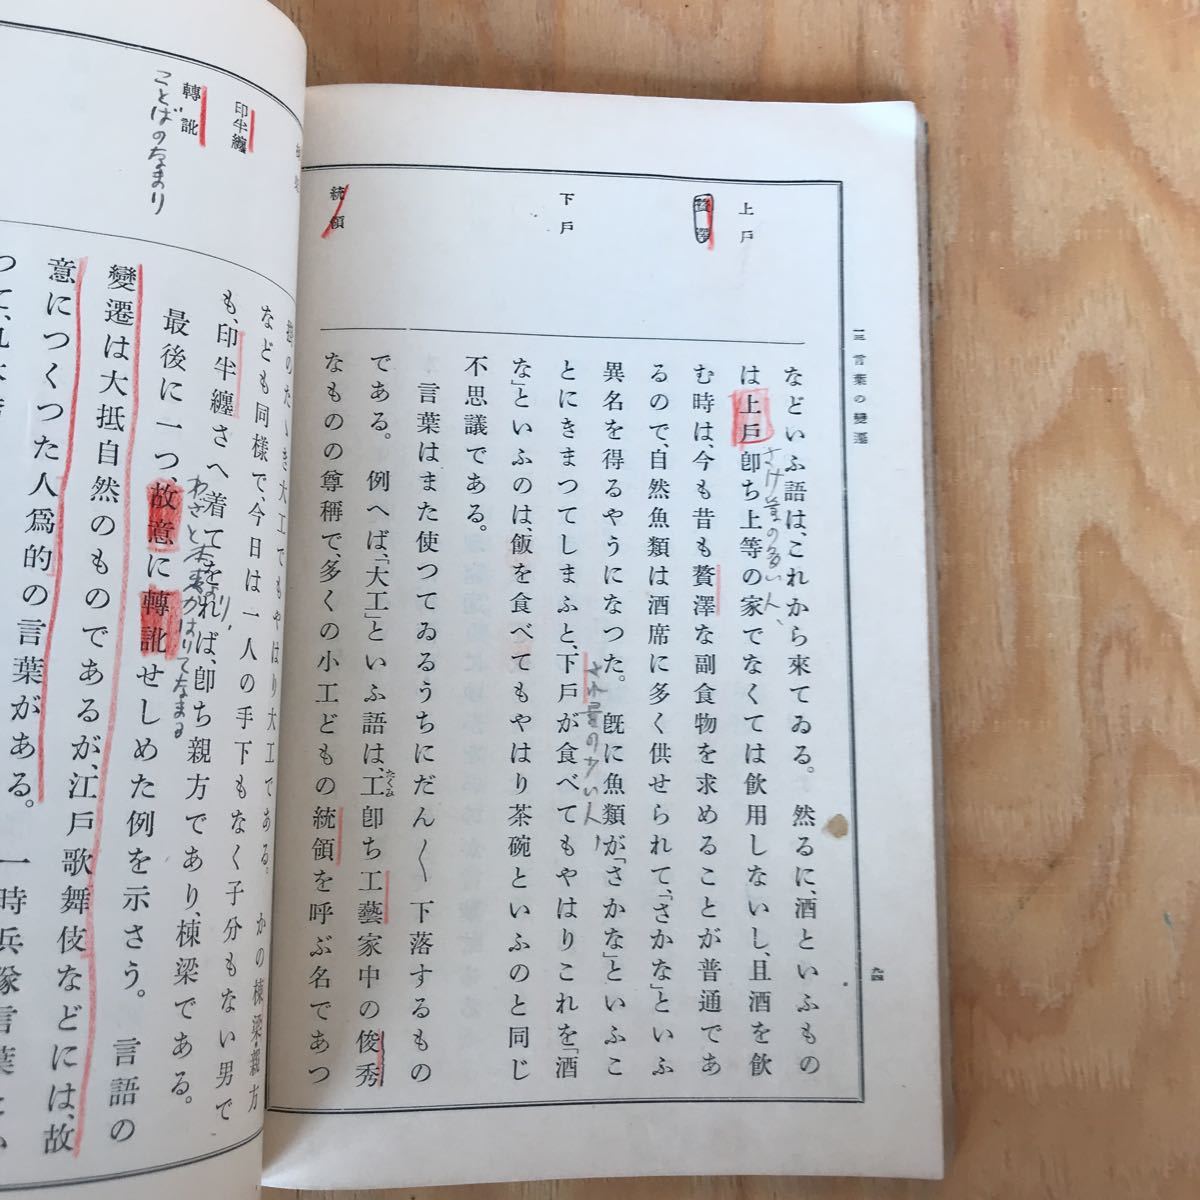 一三 言葉の變遷
九四
上戶
贅澤
下戶
統領
などいふ語は、これから來てゐる。然るに、酒といふもの
は上戶卽ち上等の家でなくては飮用しないし、且酒を飮
む時は、今も昔も贅澤な副食物を求めることが普通であ
るので、自然魚類は酒席に多く供せられて、「さかな」といふ
異名を得るやうになつた。旣に魚類が「さかな」といふこ
とにきまつてしまふと、下戶が食べてもやはりこれを「酒
な」といふのは、飯を食べてもやはり茶碗といふのと同じ
不思議である。
言葉はまた使つてゐるうちにだん〱下落するもの
である。例へば、「大工」といふ語は、工卽ち工藝家中の俊秀
たくみ
なものの尊稱で、多くの小工どもの統領を呼ぶ名であつ
さけ量の多い人、
さけ量の少い人、
印半纏
轉訛
ことばのなまり
なども同樣で、今日は一人の手下もなく子分もない男で
も、印半纏さへ着てをれば、卽ち親方であり、棟梁である。
最後に一つ、故意に轉訛せしめた例を示さう。言語の
變遷は大抵自然のものであるが、江戶歌舞伎などには、故
意につくつた人爲的の言葉がある。一時兵隊言葉とい
わざと
かはりてなまる